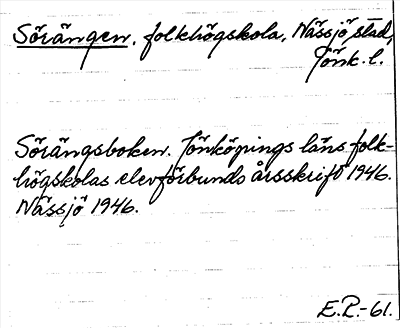 Sörängen, folkhögskola, Nässjö stad,
Jönk. l.
Sörängsboken. Jönköpings läns folk-
högskolas elevförbunds årsskrift 1946.
Nässjö 1946.
E.P.-61.